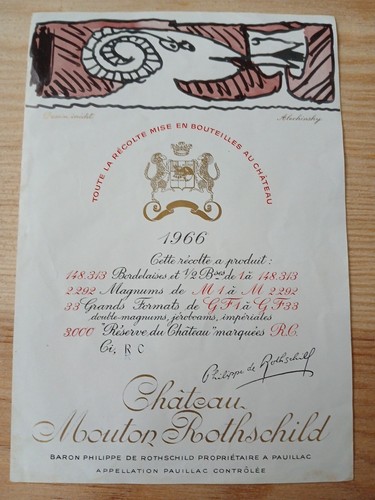 Dessin inédit Alechinsky
TOUTE LA RÉCOLTE MISE EN BOUTEILLES AU CHÂTEAU
1966
Cette récolte a produit :
148.313 Bordelaises et 1/2 Bses de 1 à 148.313
2.292 Magnums de M 1 à M 2.292
33 Grands Formats de GF1 à GF33
double-magnums, jéroboams, impériales
3.000 "Réserve du Château" marquées R.C.
Ci, R C
Philippe de Rothschild
Château
Mouton Rothschild
BARON PHILIPPE DE ROTHSCHILD PROPRIÉTAIRE A PAUILLAC
APPELLATION PAUILLAC CONTRÔLÉE